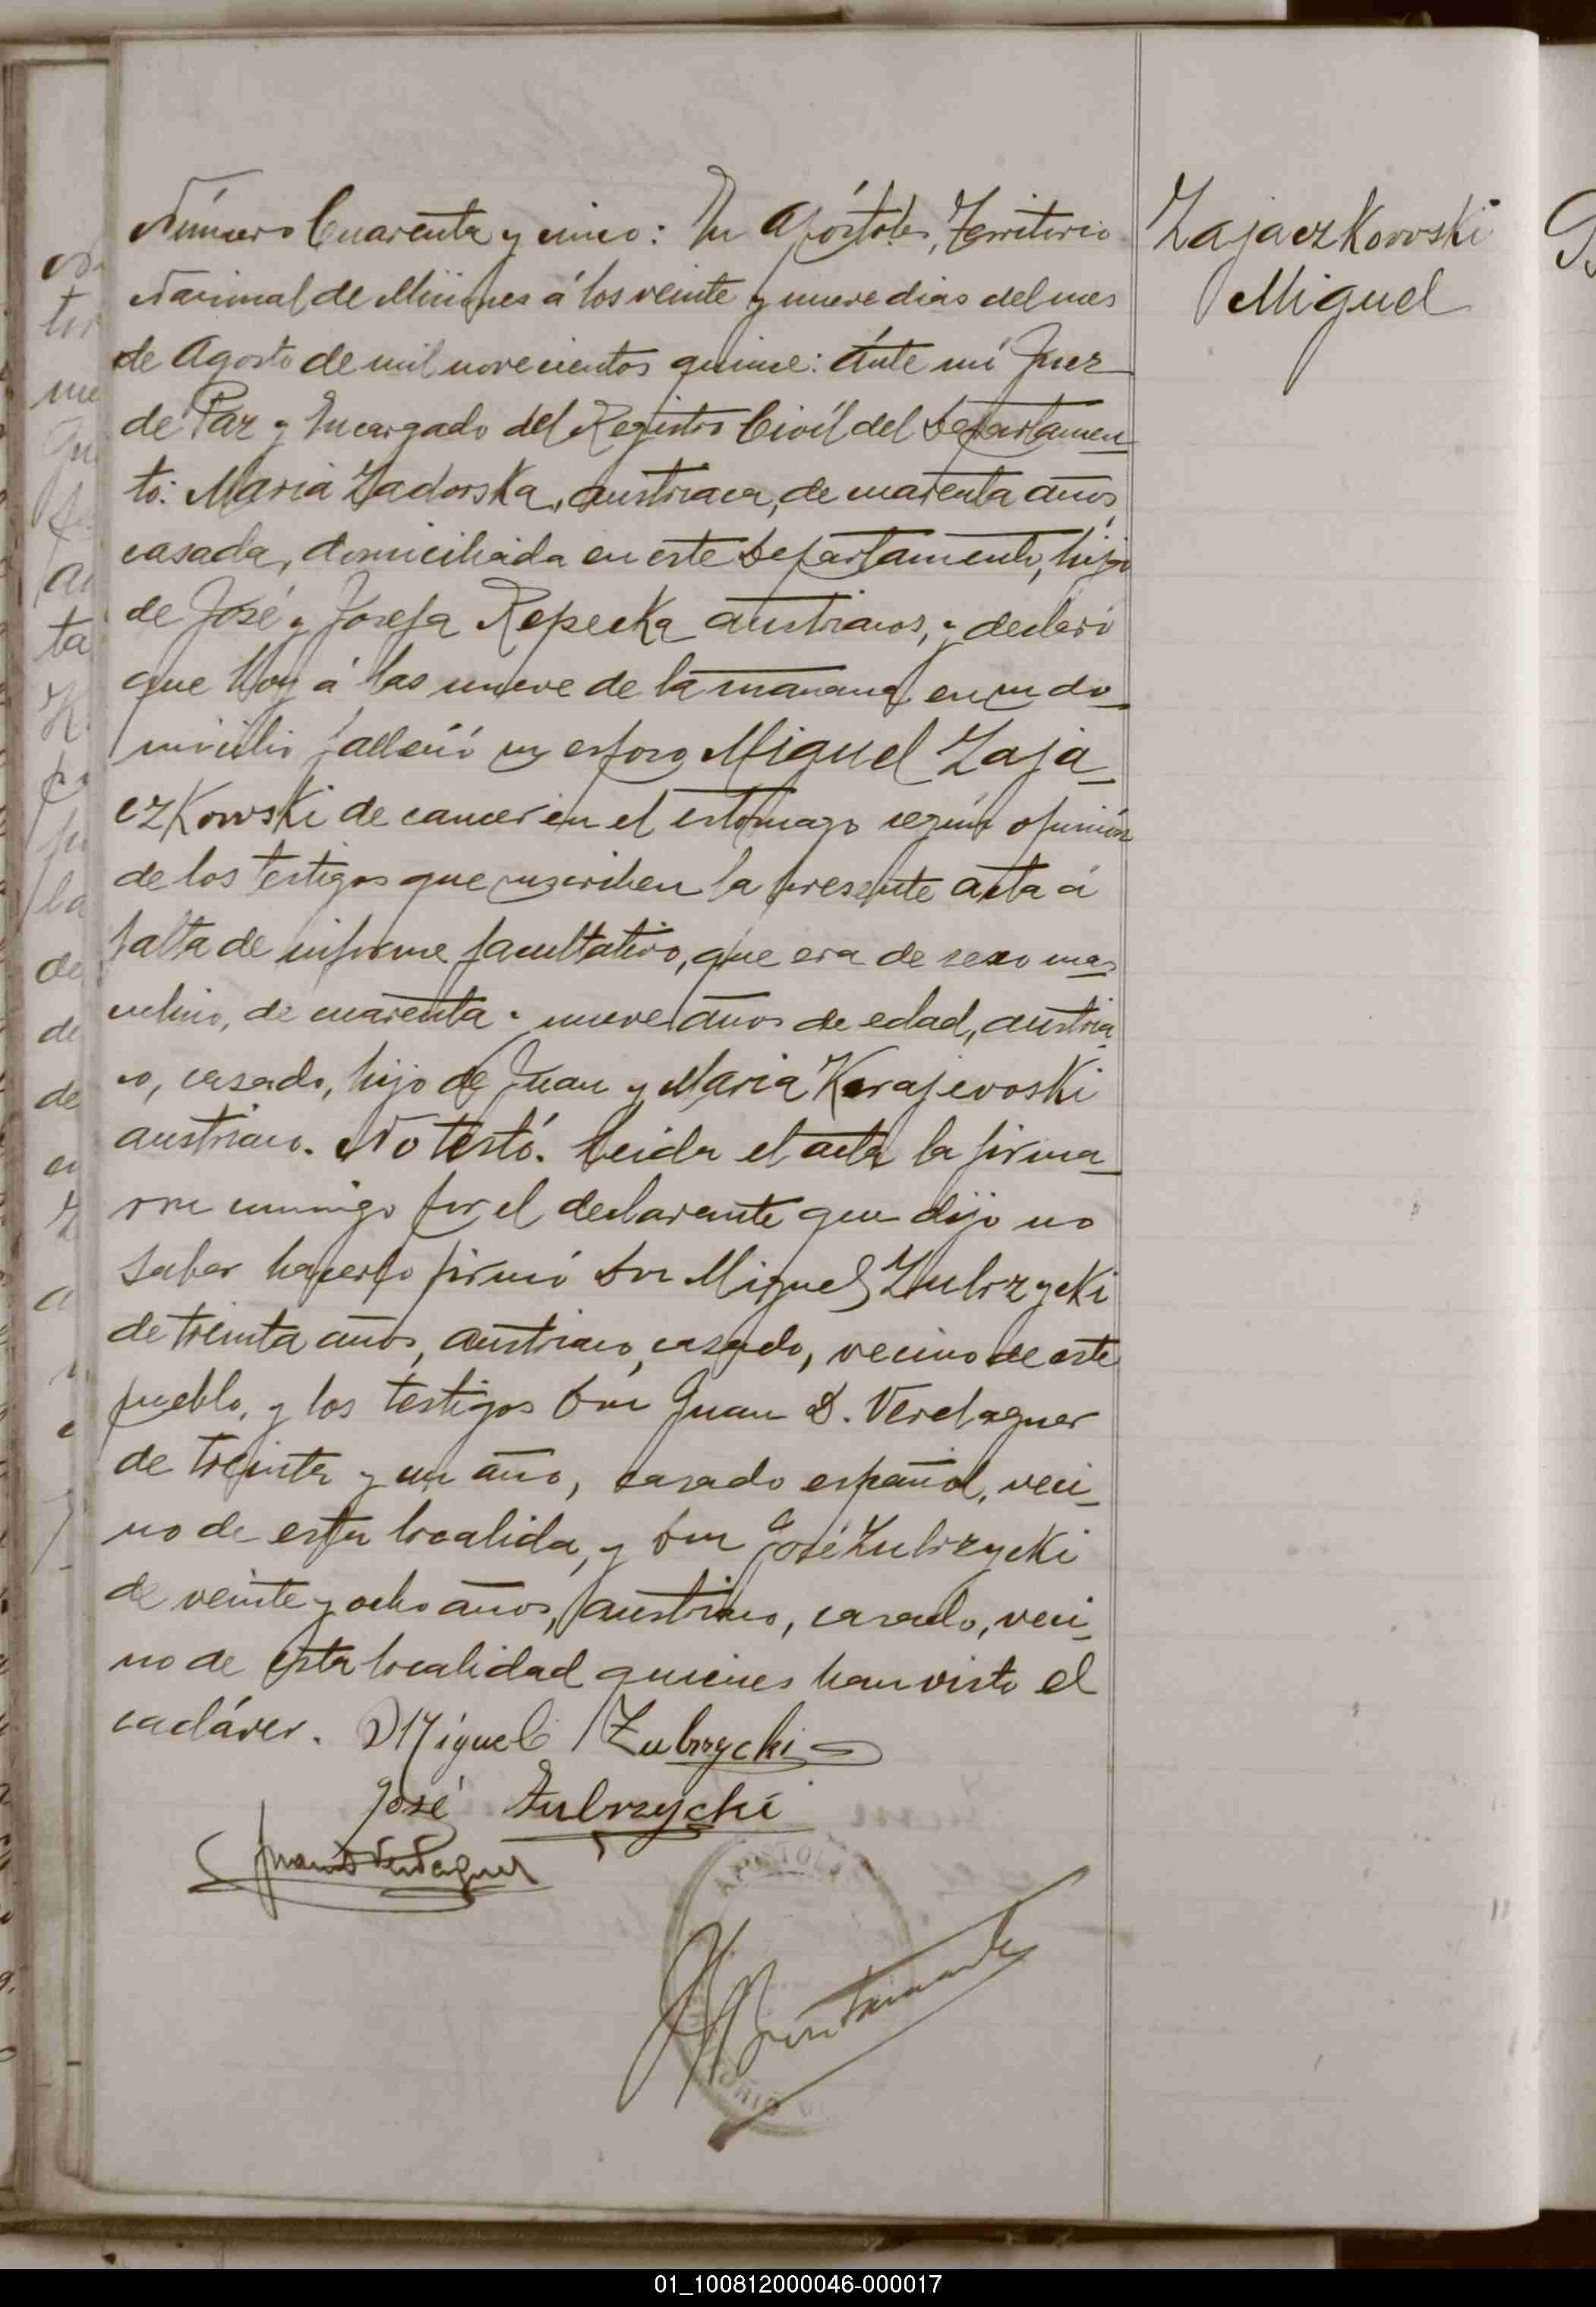 Zajaczkowski
Miguel
Número Cuarenta y cinco: En Apóstoles, Territorio
Nacional de Misiones á los veinte y nueve dias del mes
de Agosto de mil novecientos quince: Ante mí Juez
de Paz y Encargado del Registro Civil del Departamen-
to: Maria Zadorska, austriaca, de cuarenta años,
casada, domiciliada en este Departamento, hija
de José y Josefa Repecka austriacos, y declaró
que hoy á las nueve de la mañana en su do-
micilio falleció su esposo Miguel Zaja-
czkowski de cancer en el estomago según opinión
de los testigos que suscriben la presente acta á
falta de informe facultativo, que era de sexo mas-
culino, de cuarenta y nueve años de edad, austria-
co, casado, hijo de Juan y Maria Karajevoski
austriaco. No testó. Leida el acta la firma-
ron conmigo por el declarante que dijo no
saber hacerlo firmó Don Miguel Zubrzycki
de treinta años, austriaco, casado, vecino de este
pueblo, y los testigos Don Juan D. Verdaguer
de treinta y un año, casado español, veci-
no de esta localida, y Don José Zubrzycki
de veinte y ocho años, austriaco, casado, veci-
no de esta localidad quienes han visto el
cadáver. Miguel Zubrzycki
José Zubrzycki
Juan D Verdaguer
APOSTOLES
01_100812000046-000017